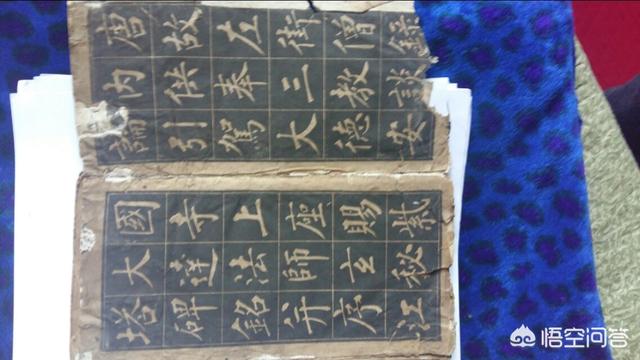 唐故左街僧錄
內供奉三教談
論引駕大德安
國寺上座賜紫
大達法師玄秘
塔碑銘并序江
悟空问答